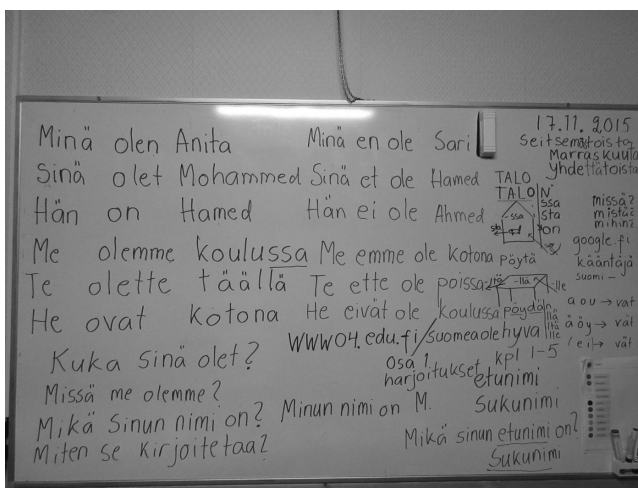 Minä olen Anita
Sinä olet Mohammed
Hän on Hamed
Me olemme koulussa
Te olette täällä
He ovat kotona
Kuka sinä olet?
Missä me olemme?
Mikä sinun nimi on?
Miten se kirjoitetaa?
Minä en ole Sari
Sinä et ole Hamed
Hän ei ole Ahmed
Me emme ole kotona
Te ette ole poissa
He eivät ole koulussa
www04.edu.fi/suomeaolehyva
Osa 1 kpl 1-5
harjoitukset
Minun nimi on M.
etunimi
Sukunimi
Mikä sinun etunimi on?
Sukunimi
17.11.2015
Seitsemätoista
Marraskuuta
yhdettätoista
TALO
TALON
ssa
sta
on
-ssa
missä?
mistä
mihin?
google.fi
kääntäjä
suomi –
pöytä
-llä
lle
pöydän
llä
ltä
lle
a o u → vat
ä ö y → vät
i e → vät